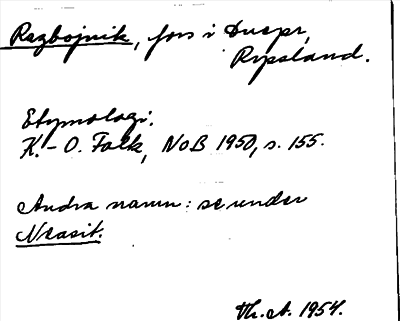 Razbojnik, fors i Dnepr,
Ryssland.
Etymologi:
K.-O. Falk, NoB 1950, s. 155.
Andra namn: se under
Neasit.
Th. A. 1954.